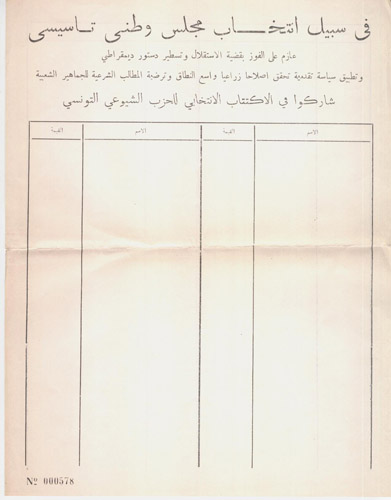 في سبيل انتخاب مجلس وطني تأسيسي
عازم على الفوز بقضية الاستقلال وتسطير دستور ديمقراطي
وتطبيق سياسة تقدمية تحقق اصلاحا زراعيا واسع النطاق وترضية المطالب الشرعية للجماهير الشعبية
شاركوا في الاكتتاب الانتخابي للحزب الشيوعي التونسي
الاسم القيمة الاسم القيمة
Nº 000578